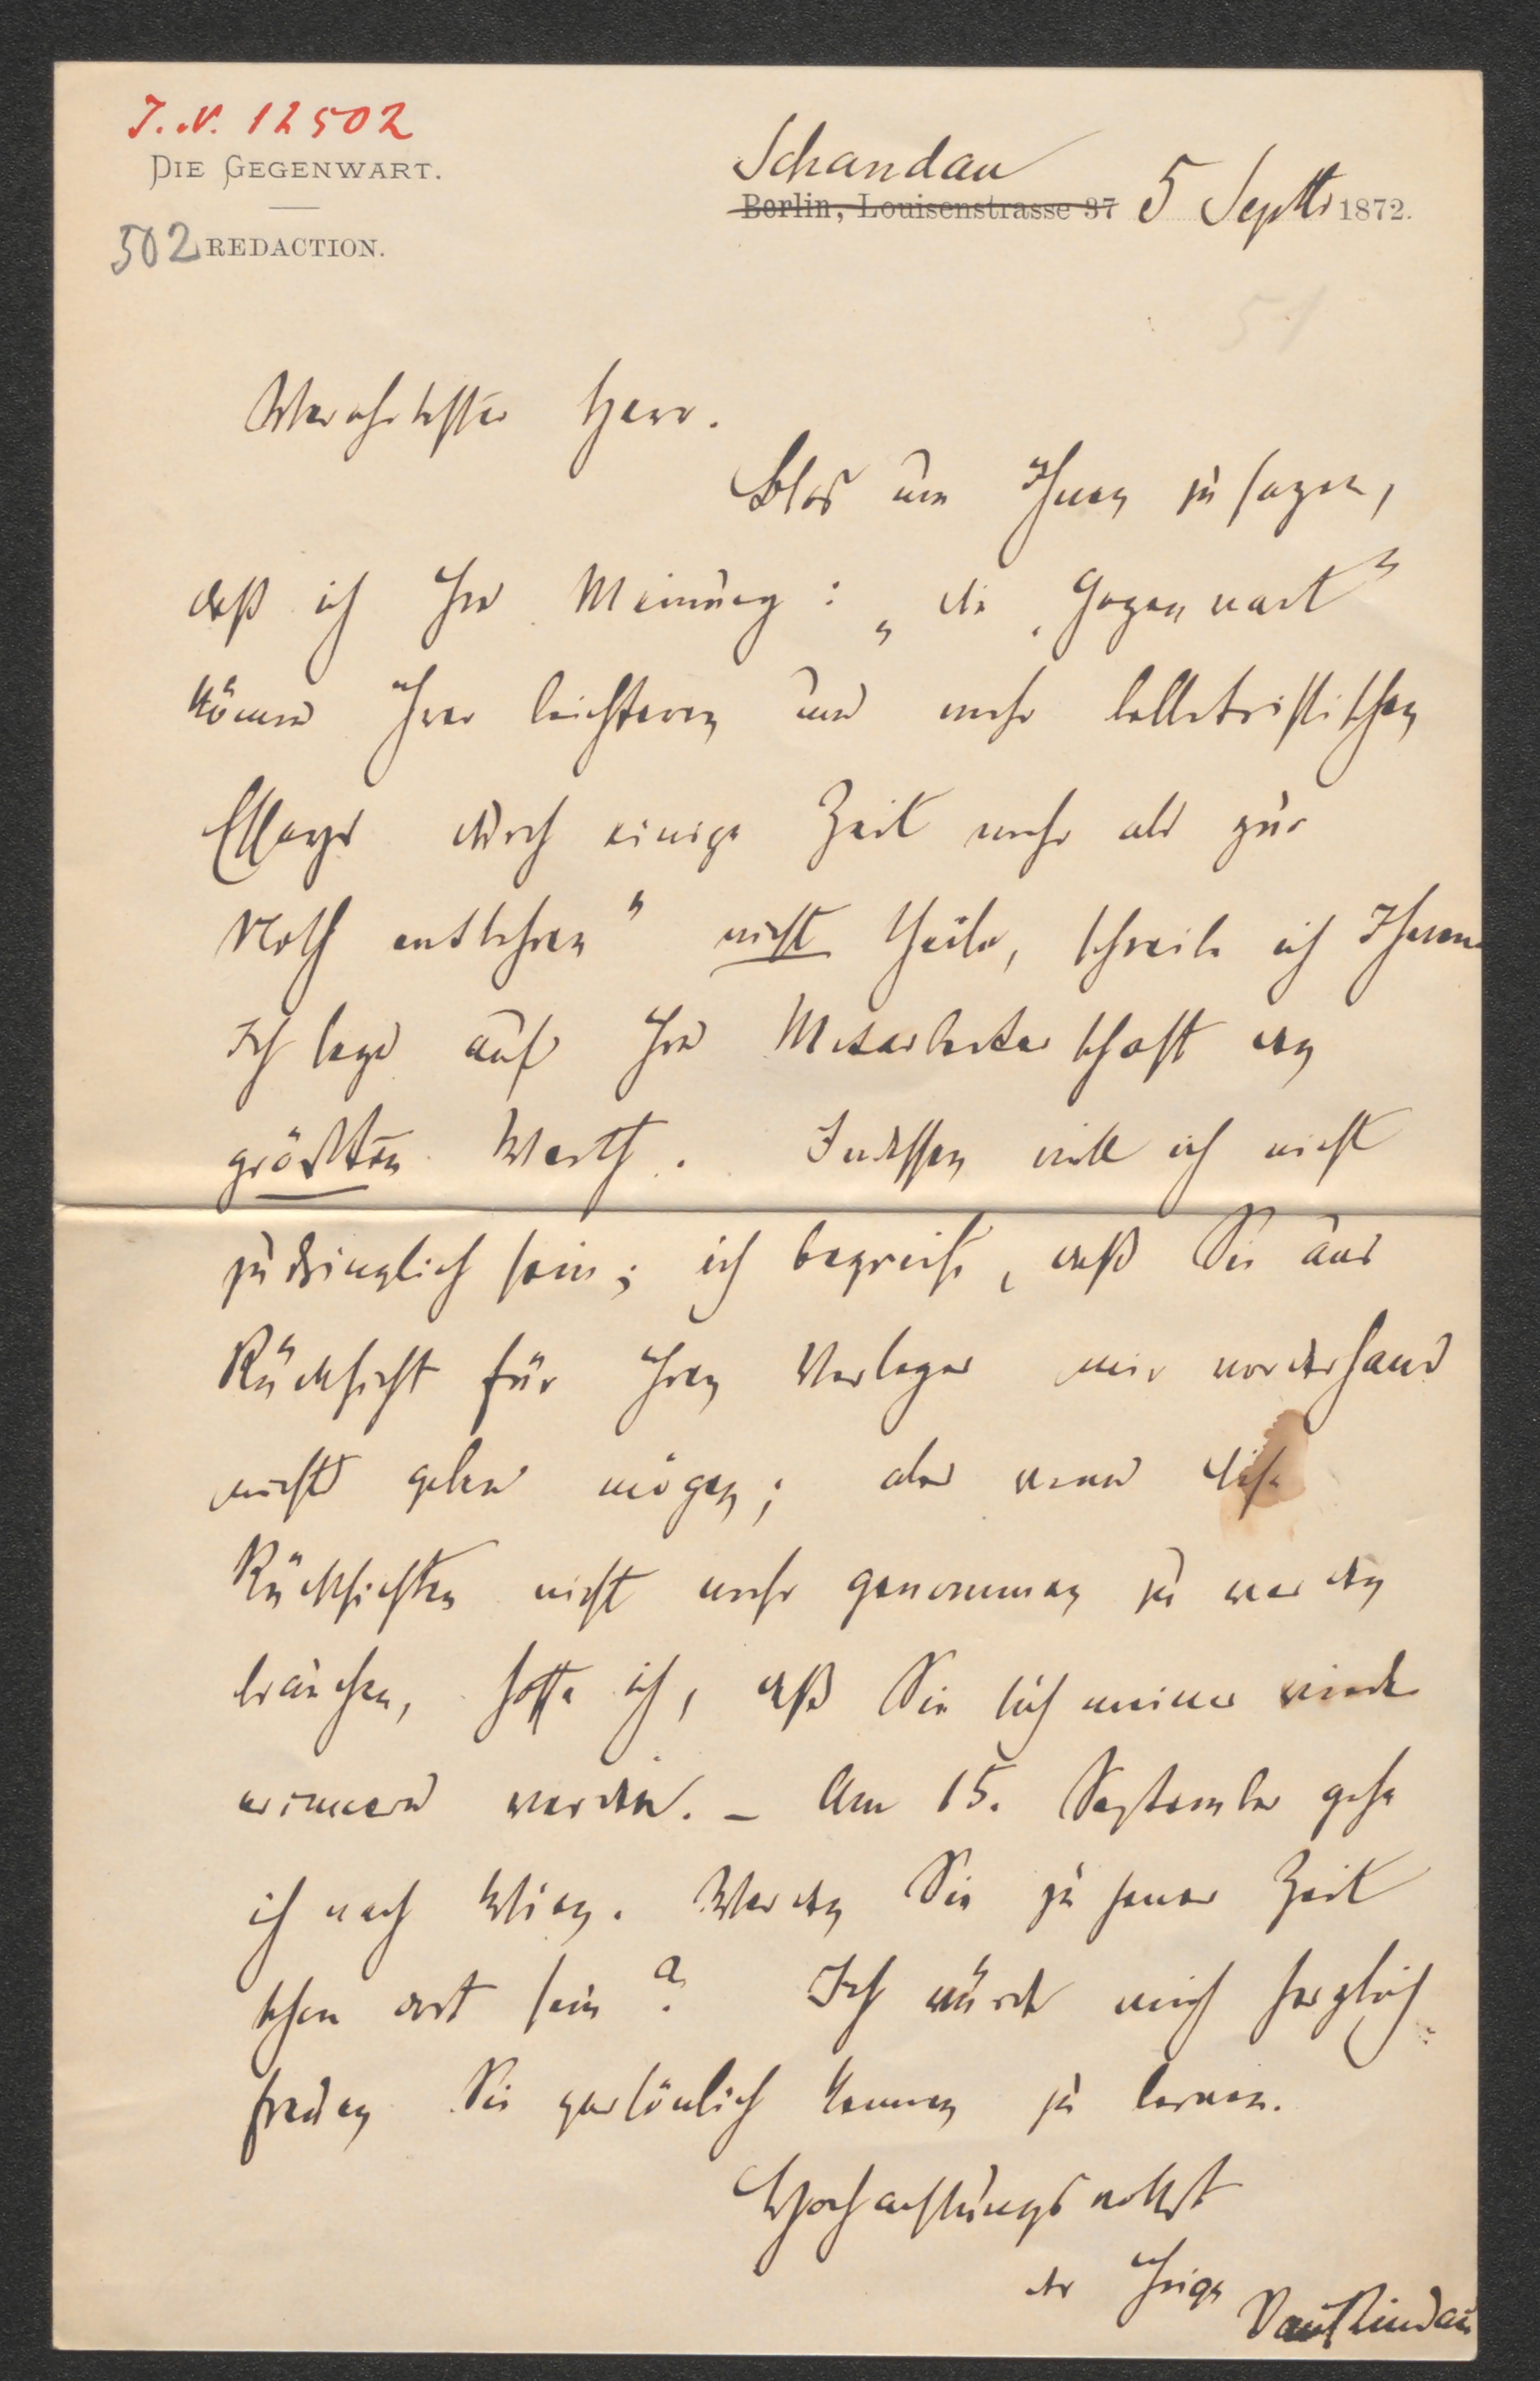 J. N. 12502
DIE GEGENWART.
502 REDACTION.
Schandau
Berlin, Louisenstrasse 37 5 Septb 1872.
51
Verehrtester Herr.
Blos um Ihnen zu sagen,
daß ich Ihre Meinung: „die „Gegenwart"
könne Ihrer leichteren und mehr belletristischen
Essays doch einige Zeit mehr als zur
Noth entbehren" nicht theile, schreibe ich Ihnen.
Ich lege auf Ihre Mitarbeiterschaft den
größten Werth. Indessen will ich nicht
zudringlich sein; ich begreife, daß Sie aus
Rücksicht für Ihren Verleger mir vorderhand
nichts geben mögen; aber wenn diese
Rücksichten nicht mehr genommen zu werden
brauchen, hoffe ich, daß Sie sich meiner wieder
erinnern werden. – Am 15. September gehe
ich nach Wien. Werden Sie zu jener Zeit
schon dort sein? Ich würde mich herzlich
freuen Sie persönlich kennen zu lernen.
Hochachtungsvollst
der Ihrige
Paul Lindau